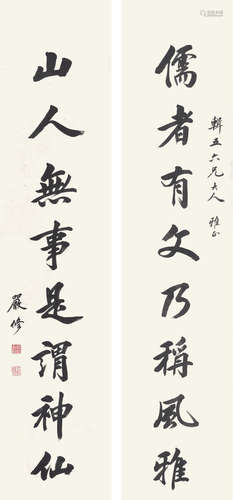 輯五六兄大人 雅正
儒者有文乃稱風雅
山人無事是謂神仙
嚴修